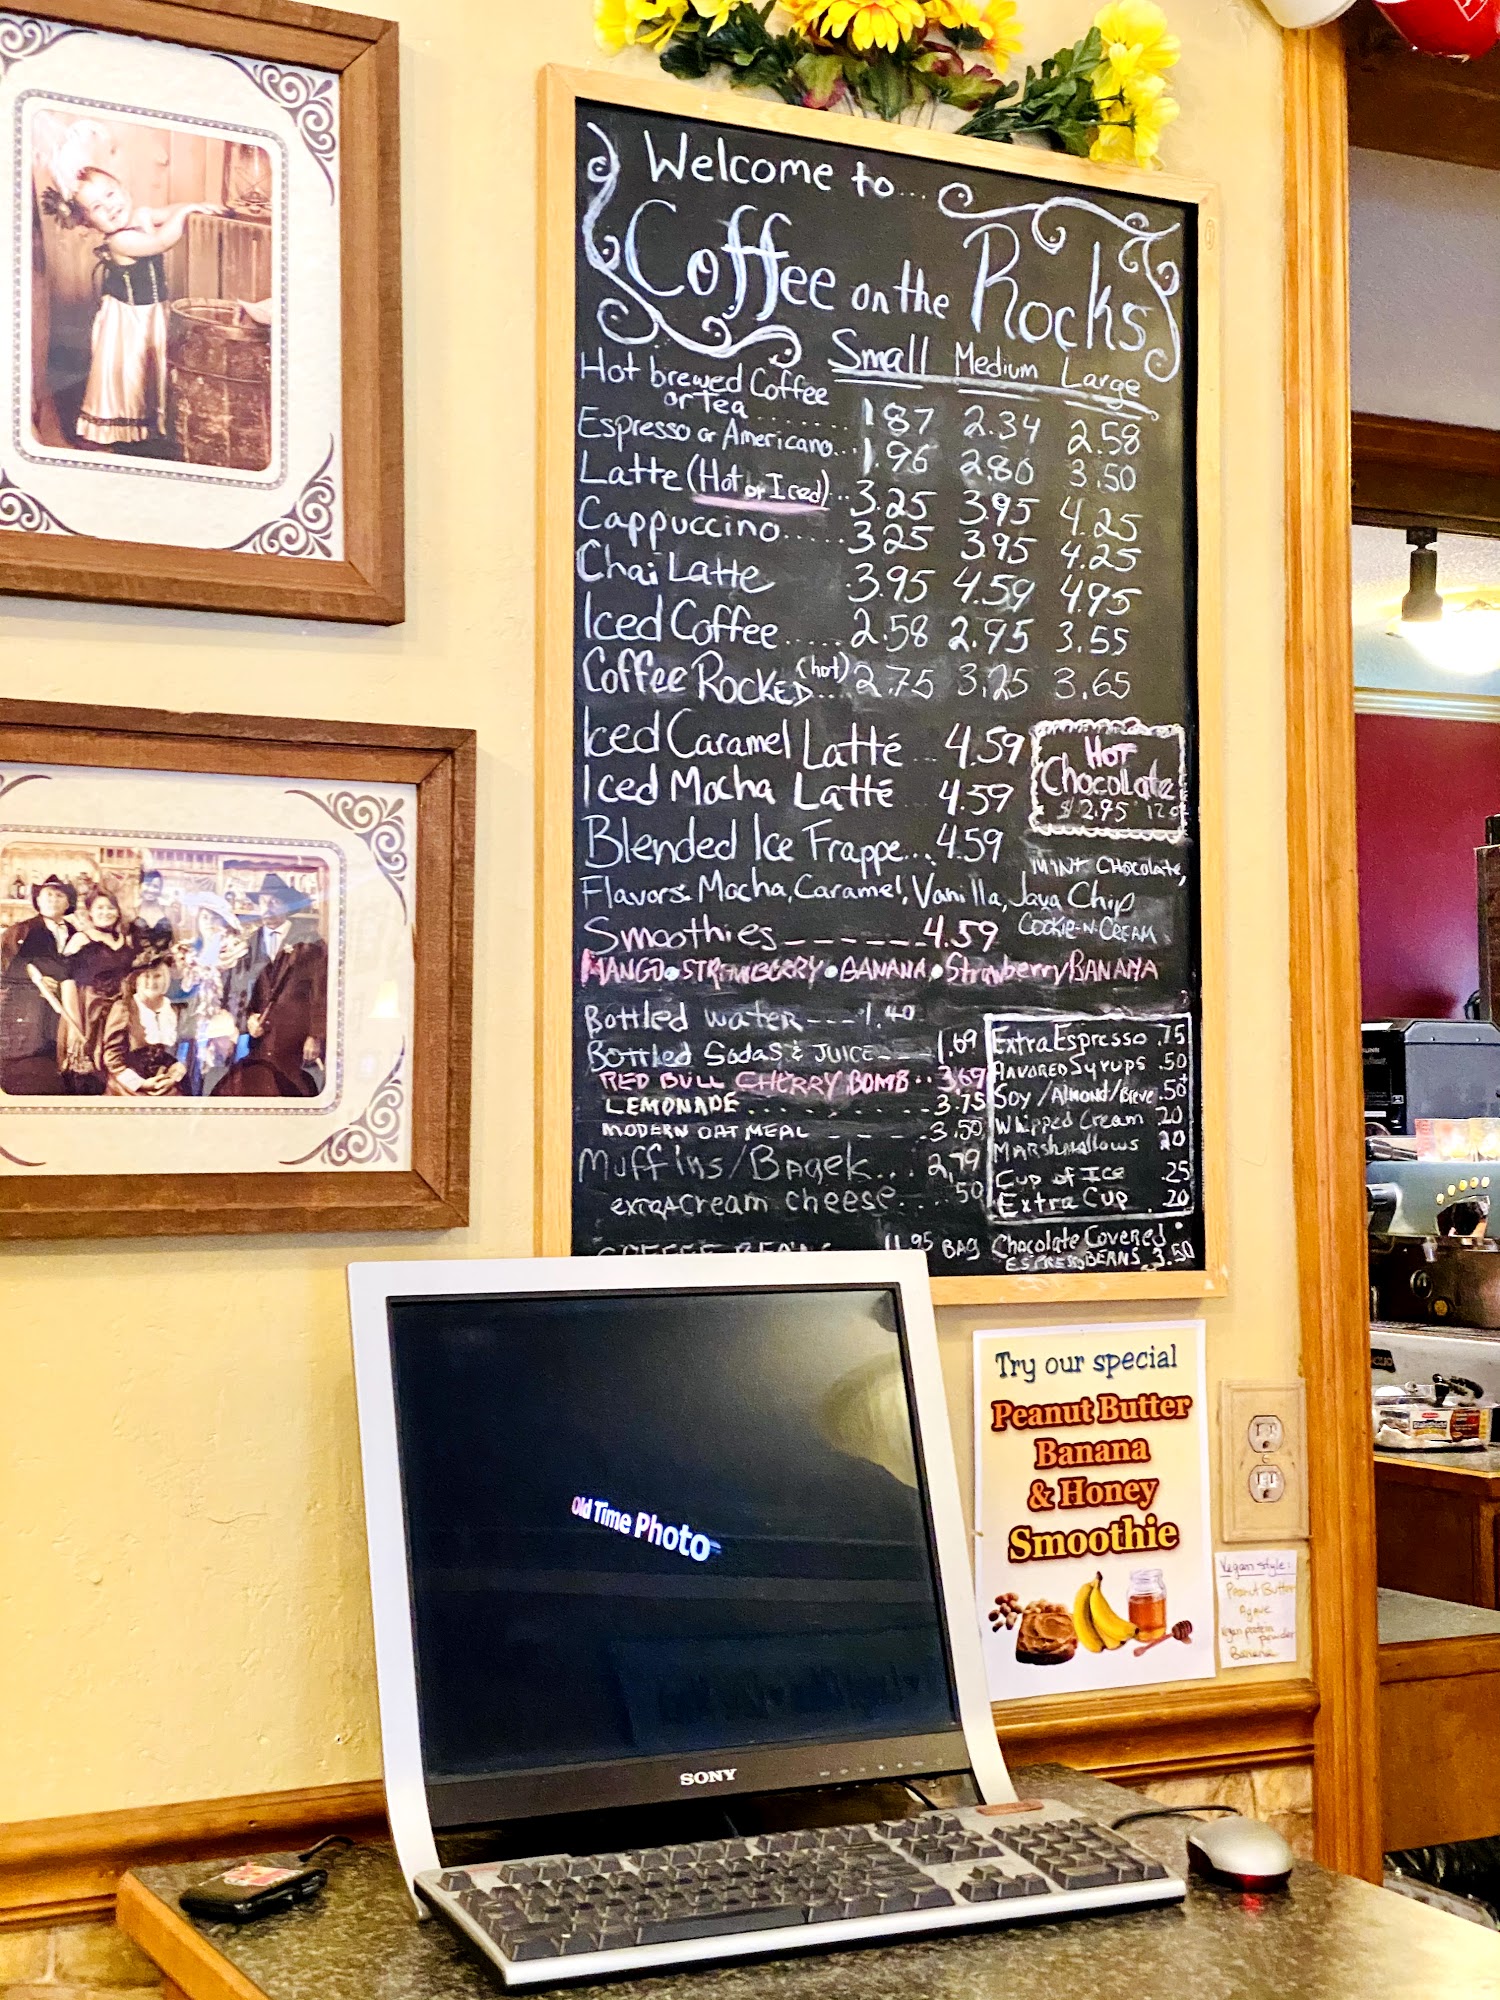 Welcome to...
Coffee on the Rocks
Small Medium Large
Hot brewed Coffee
or Tea ........ 1.87 2.34 2.58
Espresso or Americano... 1.96 2.80 3.50
Latte (Hot or Iced).. 3.25 3.95 4.25
Cappuccino..... 3.25 3.95 4.25
Chai Latte 3.95 4.59 4.95
Iced Coffee..... 2.58 2.95 3.55
Coffee ROCKED (hot)... 2.75 3.25 3.65
Iced Caramel Latté ... 4.59
Iced Mocha Latté 4.59
HOT
CHOCOLLate
$2.95 12o
Blended Ice Frappe.... 4.59
MINT CHOCOLATE,
Flavors: Mocha, Caramel, Vanilla, Java Chip
COOKIE-N-CREAM
Smoothies ------ 4.59
MANGO • STRAWBERRY • BANANA • Strawberry BANANA
Bottled water --- 1.40
Bottled Sodas & JUICE --- 1.69
RED BULL CHERRY BOMB .. 3.69
LEMONADE.......... 3.75
MODERN OATMEAL - - - - 3.50
Muffins/Bagels... 2.79
extra cream cheese... .50
COFFEE BEANS 11.95 BAG
Extra Espresso .75
FLAVORED Syrups .50
Soy/Almond/Breve .50+
Whipped Cream .20
MARSHMALLOWS .20
Cup of Ice .25
Extra Cup .20
Chocolate Covered
ESPRESSO BEANS 3.50
Old Time Photo
SONY
Try our special
Peanut Butter
Banana
& Honey
Smoothie
Vegan style:
Peanut Butter
Agave
Vegan protein
powder
Banana